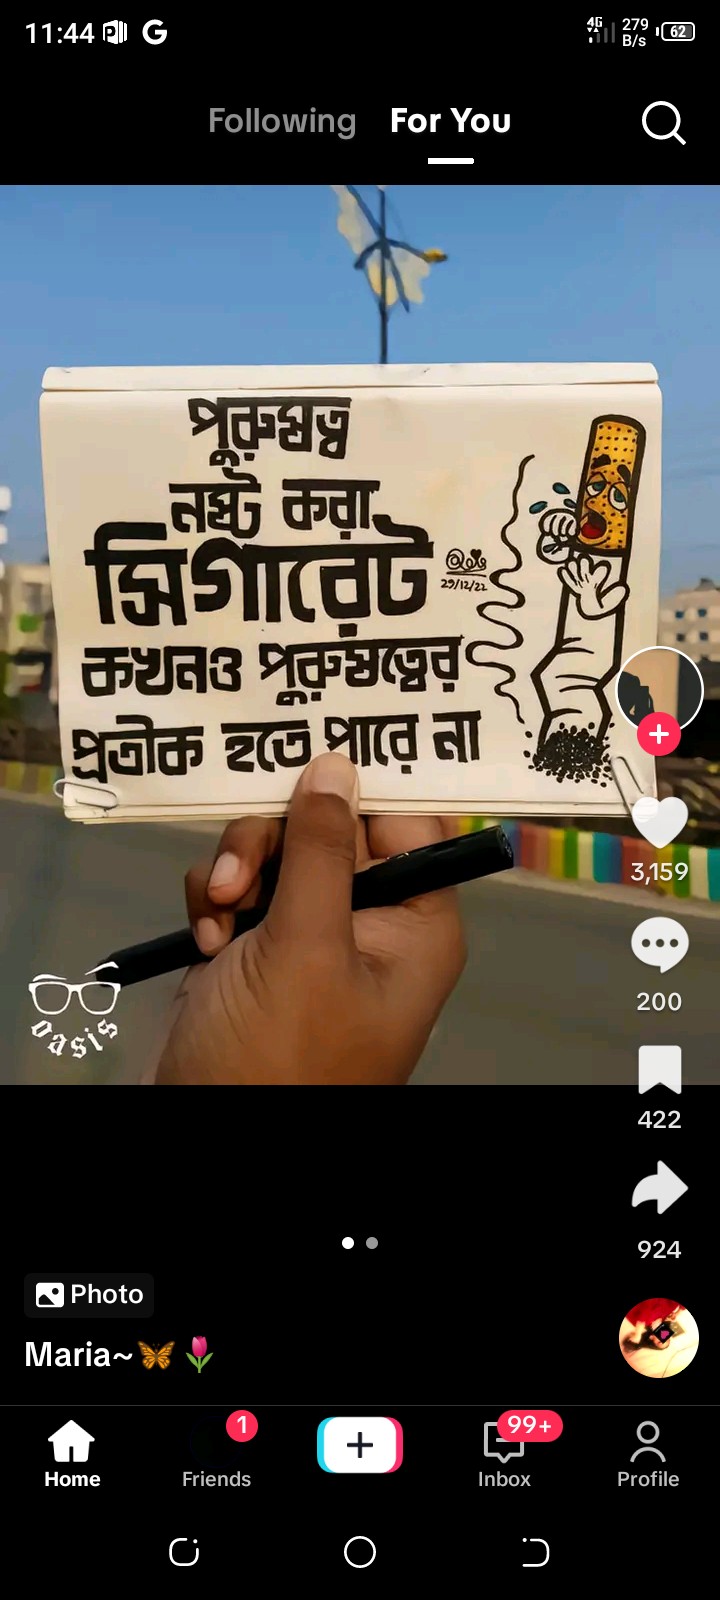 11:44
4G
279
B/s
62
Following
For You
পুরুষত্ব
নষ্ট করা
সিগারেট
29/12/22
কখনও পুরুষত্বের
প্রতীক হতে পারে না
oasis
3,159
200
422
924
Photo
Maria~🦋🌷
1
99+
Home
Friends
Inbox
Profile